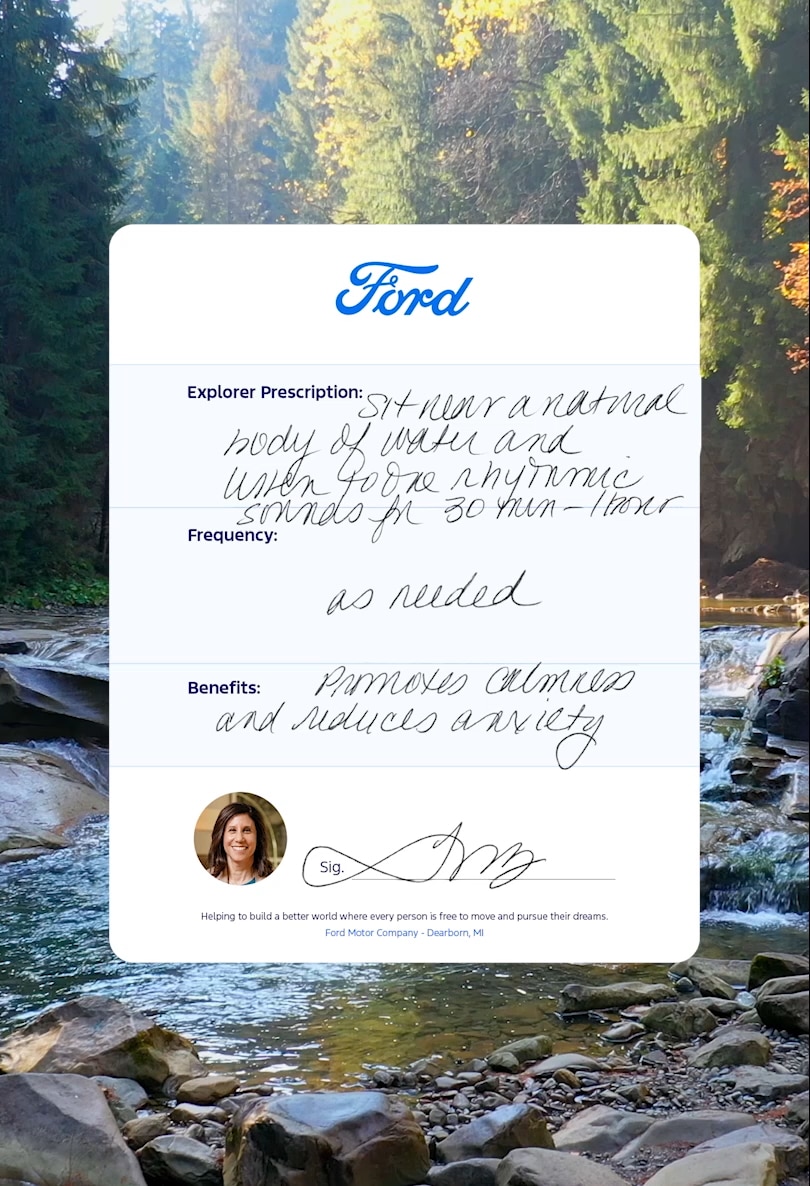 Ford
Explorer Prescription: Sit near a natural
body of water and
listen to the rhythmic
sounds for 30 min - 1 hour
Frequency:
as needed
Benefits: Promotes calmness
and reduces anxiety
Sig.
Helping to build a better world where every person is free to move and pursue their dreams.
Ford Motor Company - Dearborn, MI